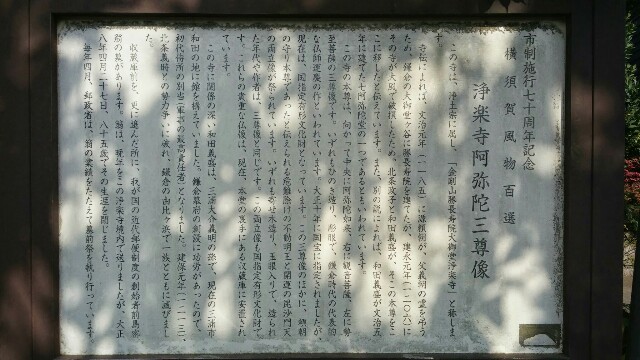 市制施行七十周年記念
横須賀風物百選
浄楽寺阿弥陀三尊像
この寺は、浄土宗に属し、「金剛山勝長寿院大御堂浄楽寺」と称しま
す。
寺伝によれば、文治元年(一一八五)に源頼朝が、父義朝の霊を弔う
ため、鎌倉の大御堂ヶ谷に勝長寿院を建てたが、建永元年(一二〇六)に
その寺が大風で破損したため、北条政子と和田義盛が、そこの本尊をこ
こに移したと伝えています。また、別の説によれば、和田義盛が文治五
年に建てた七阿弥陀堂の一つであるともいわれています。
この寺の本尊は、向かって中央に阿弥陀如来、右に観音菩薩、左に勢
至菩薩の三尊像です。いずれもひのき造り、彫眼で、鎌倉時代の代表的
な仏師運慶の作といわれています。大正十年に国宝に指定されましたが、
現在は、国指定有形文化財となっています。この三尊像のほかに、頼朝
の守り本尊であったと伝えられる危難除けの不動明王と開運の毘沙門天
の両立像が祭られています。いずれも寄せ木造り、玉眼入りで、造られ
た年代や作者は、三尊像と同じです。この両立像も国指定有形文化財で
す。これらの貴重な仏像は、現在、本堂の裏手にある収蔵庫に安置され
ています。
この寺に関係の深い和田義盛は、三浦大介義明の孫で、現在の三浦市
和田の地に館を構えていました。鎌倉幕府の創設に功労があったので、
初代侍所の別当(軍事の最高責任者)となりました。建保元年(一二一三)、
北条義時との勢力争いに敗れ、鎌倉の由比ヶ浜で一族とともに滅びまし
た。
収蔵庫前を、更に進んだ所に、我が国の近代郵便制度の創始者前島密
翁の墓があります。翁は、晩年をこの浄楽寺境内で送りましたが、大正
八年四月二十七日、八十五歳でその生涯を閉じました。
毎年四月、郵政省は、翁の業績をたたえて墓前祭を執り行っています。